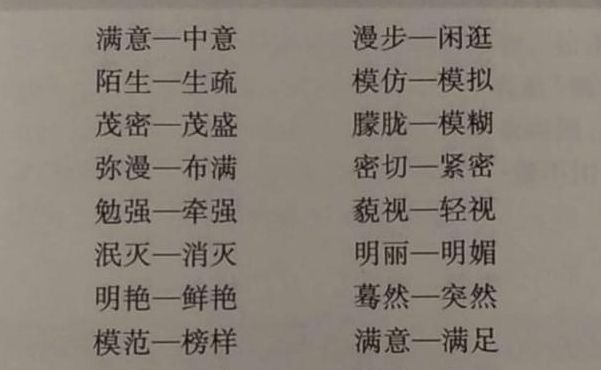 满意—中意 漫步—闲逛
陌生—生疏 模仿—模拟
茂密—茂盛 朦胧—模糊
弥漫—布满 密切—紧密
勉强—牵强 藐视—轻视
泯灭—消灭 明丽—明媚
明艳—鲜艳 蓦然—突然
模范—榜样 满意—满足